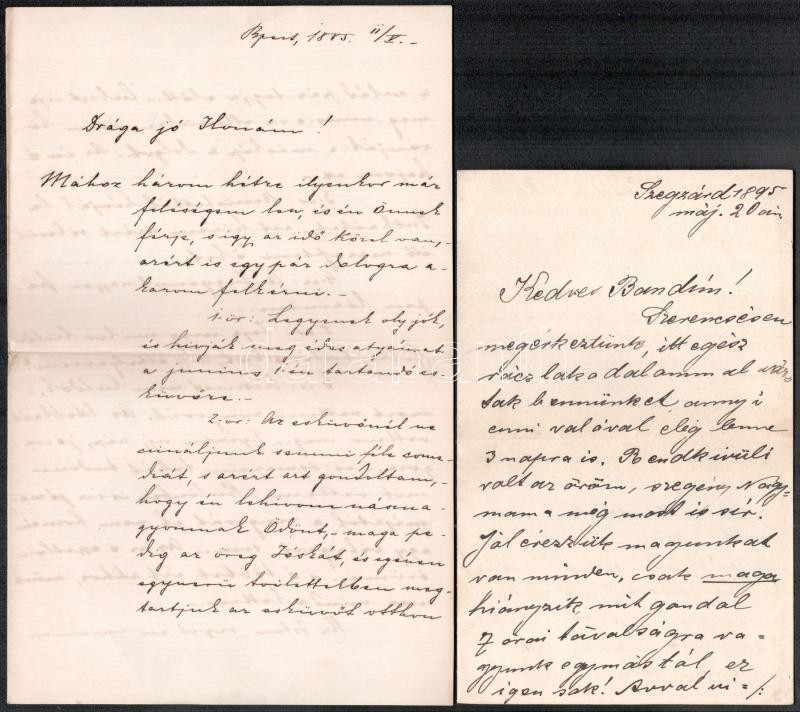 Bpest, 1885. 11/V.-
Drága jó Ilonám!
Mához három hétre ilyenkor már
feleségem lesz, és én Önnek
férje, s így az idő közel van,-
azért is egy pár dologra a-
karom felkérni.-
1-ör: Legyenek oly jók,
és hívják meg édes atyámat
a junius 1-én tartandó es-
küvőre.-
2-or: Az esküvőnél ne
csináljunk semmi féle come-
diát, s azért azt gondoltam,-
hogy én lehivom nászna-
gyomnak Ödönt,- maga pe-
dig az öreg Jóskát, és egészen
egyszerű toilettekben meg-
tartjuk az esküvőt otthon
Szegzárd 1895
máj. 20 án
Kedves Bandim!
Szerencsésen
megérkeztünk, itt egész
rácz lakodalommal vár-
tak bennünket annyi
enni valóval elég lenne
3 napra is. Rendkivüli
volt az öröm, szegény Nagy-
mama még most is sír.
Jól érezzük magunkat
van minden, csak maga
hiányzik, mit gondol
7 órai távolságra va-
gyunk egymástól, ez
igen sok! Avval vi-/:
darabanth